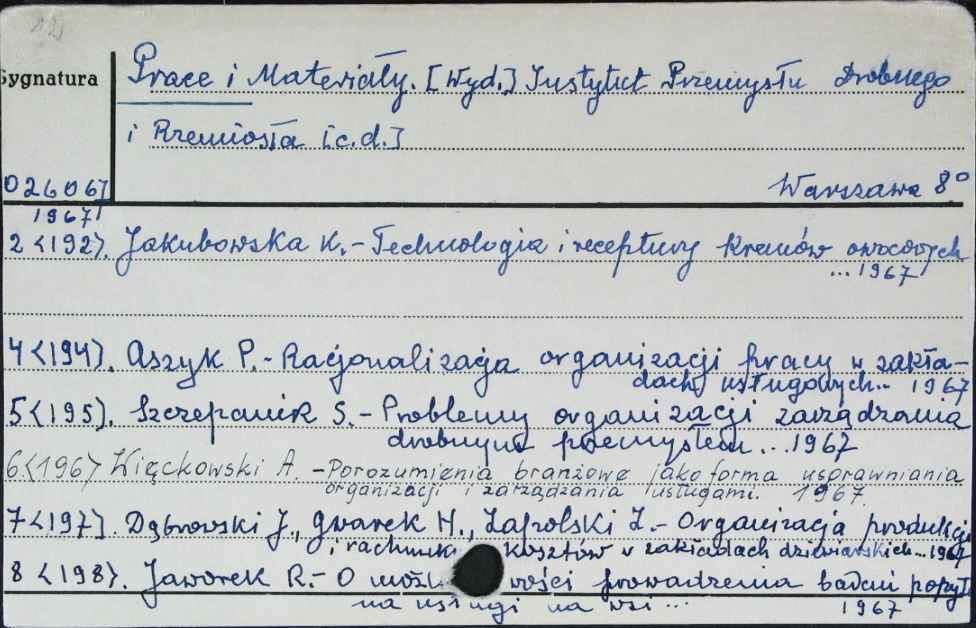 Sygnatura
Prace i Materiały. [Wyd.] Instytut Przemysłu Drobnego
i Rzemiosła [c.d.]
026067
Warszawa 8°
1967
2 <192>. Jakubowska K. - Technologia i receptury kremów owocowych
... 1967
4 <194>. Aszyk P. - Racjonalizacja organizacji pracy w zakła-
dach usługowych... 1967
5 <195>. Szczepanik S. - Problemy organizacji zarządzania
drobnym przemysłem... 1967
6 <196> Więckowski A. - Porozumienia branżowe jako forma usprawniania
organizacji i zarządzania usługami. 1967
7 <197>. Dąbrowski J., Gwarek H., Zapolski Z. - Organizacja produkcji
i rachunek kosztów w zakładach dziewiarskich... 1967
8 <198>. Jaworek R. - O możli wości prowadzenia badań popytu
na usługi na wsi ... 1967